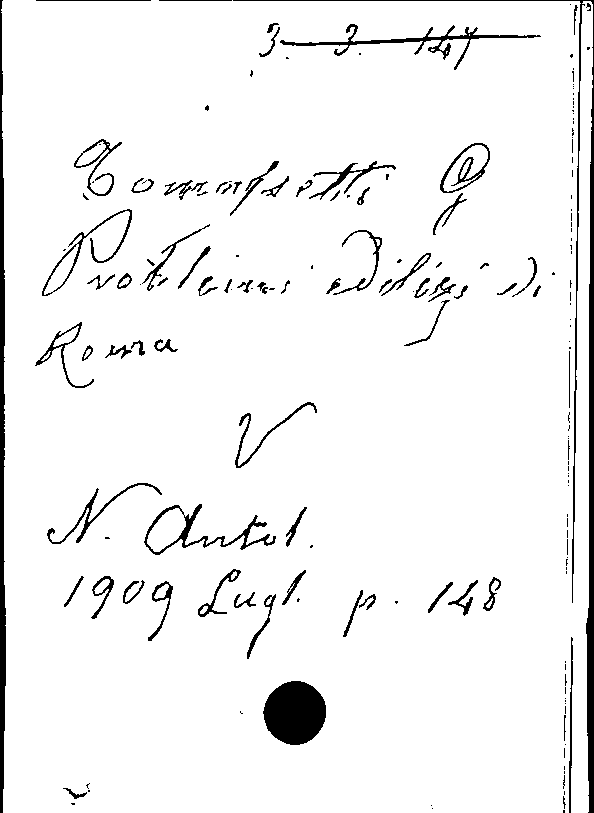 3. 3. 147
Tomassetti G
Problemi edilizi di
Roma
V
N. Antol.
1909 Lugl. p. 148